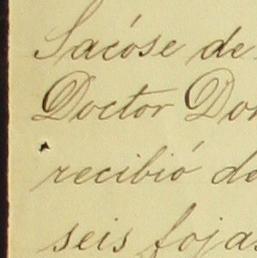 Sacóse de
Doctor Don
recibió de
seis fojas